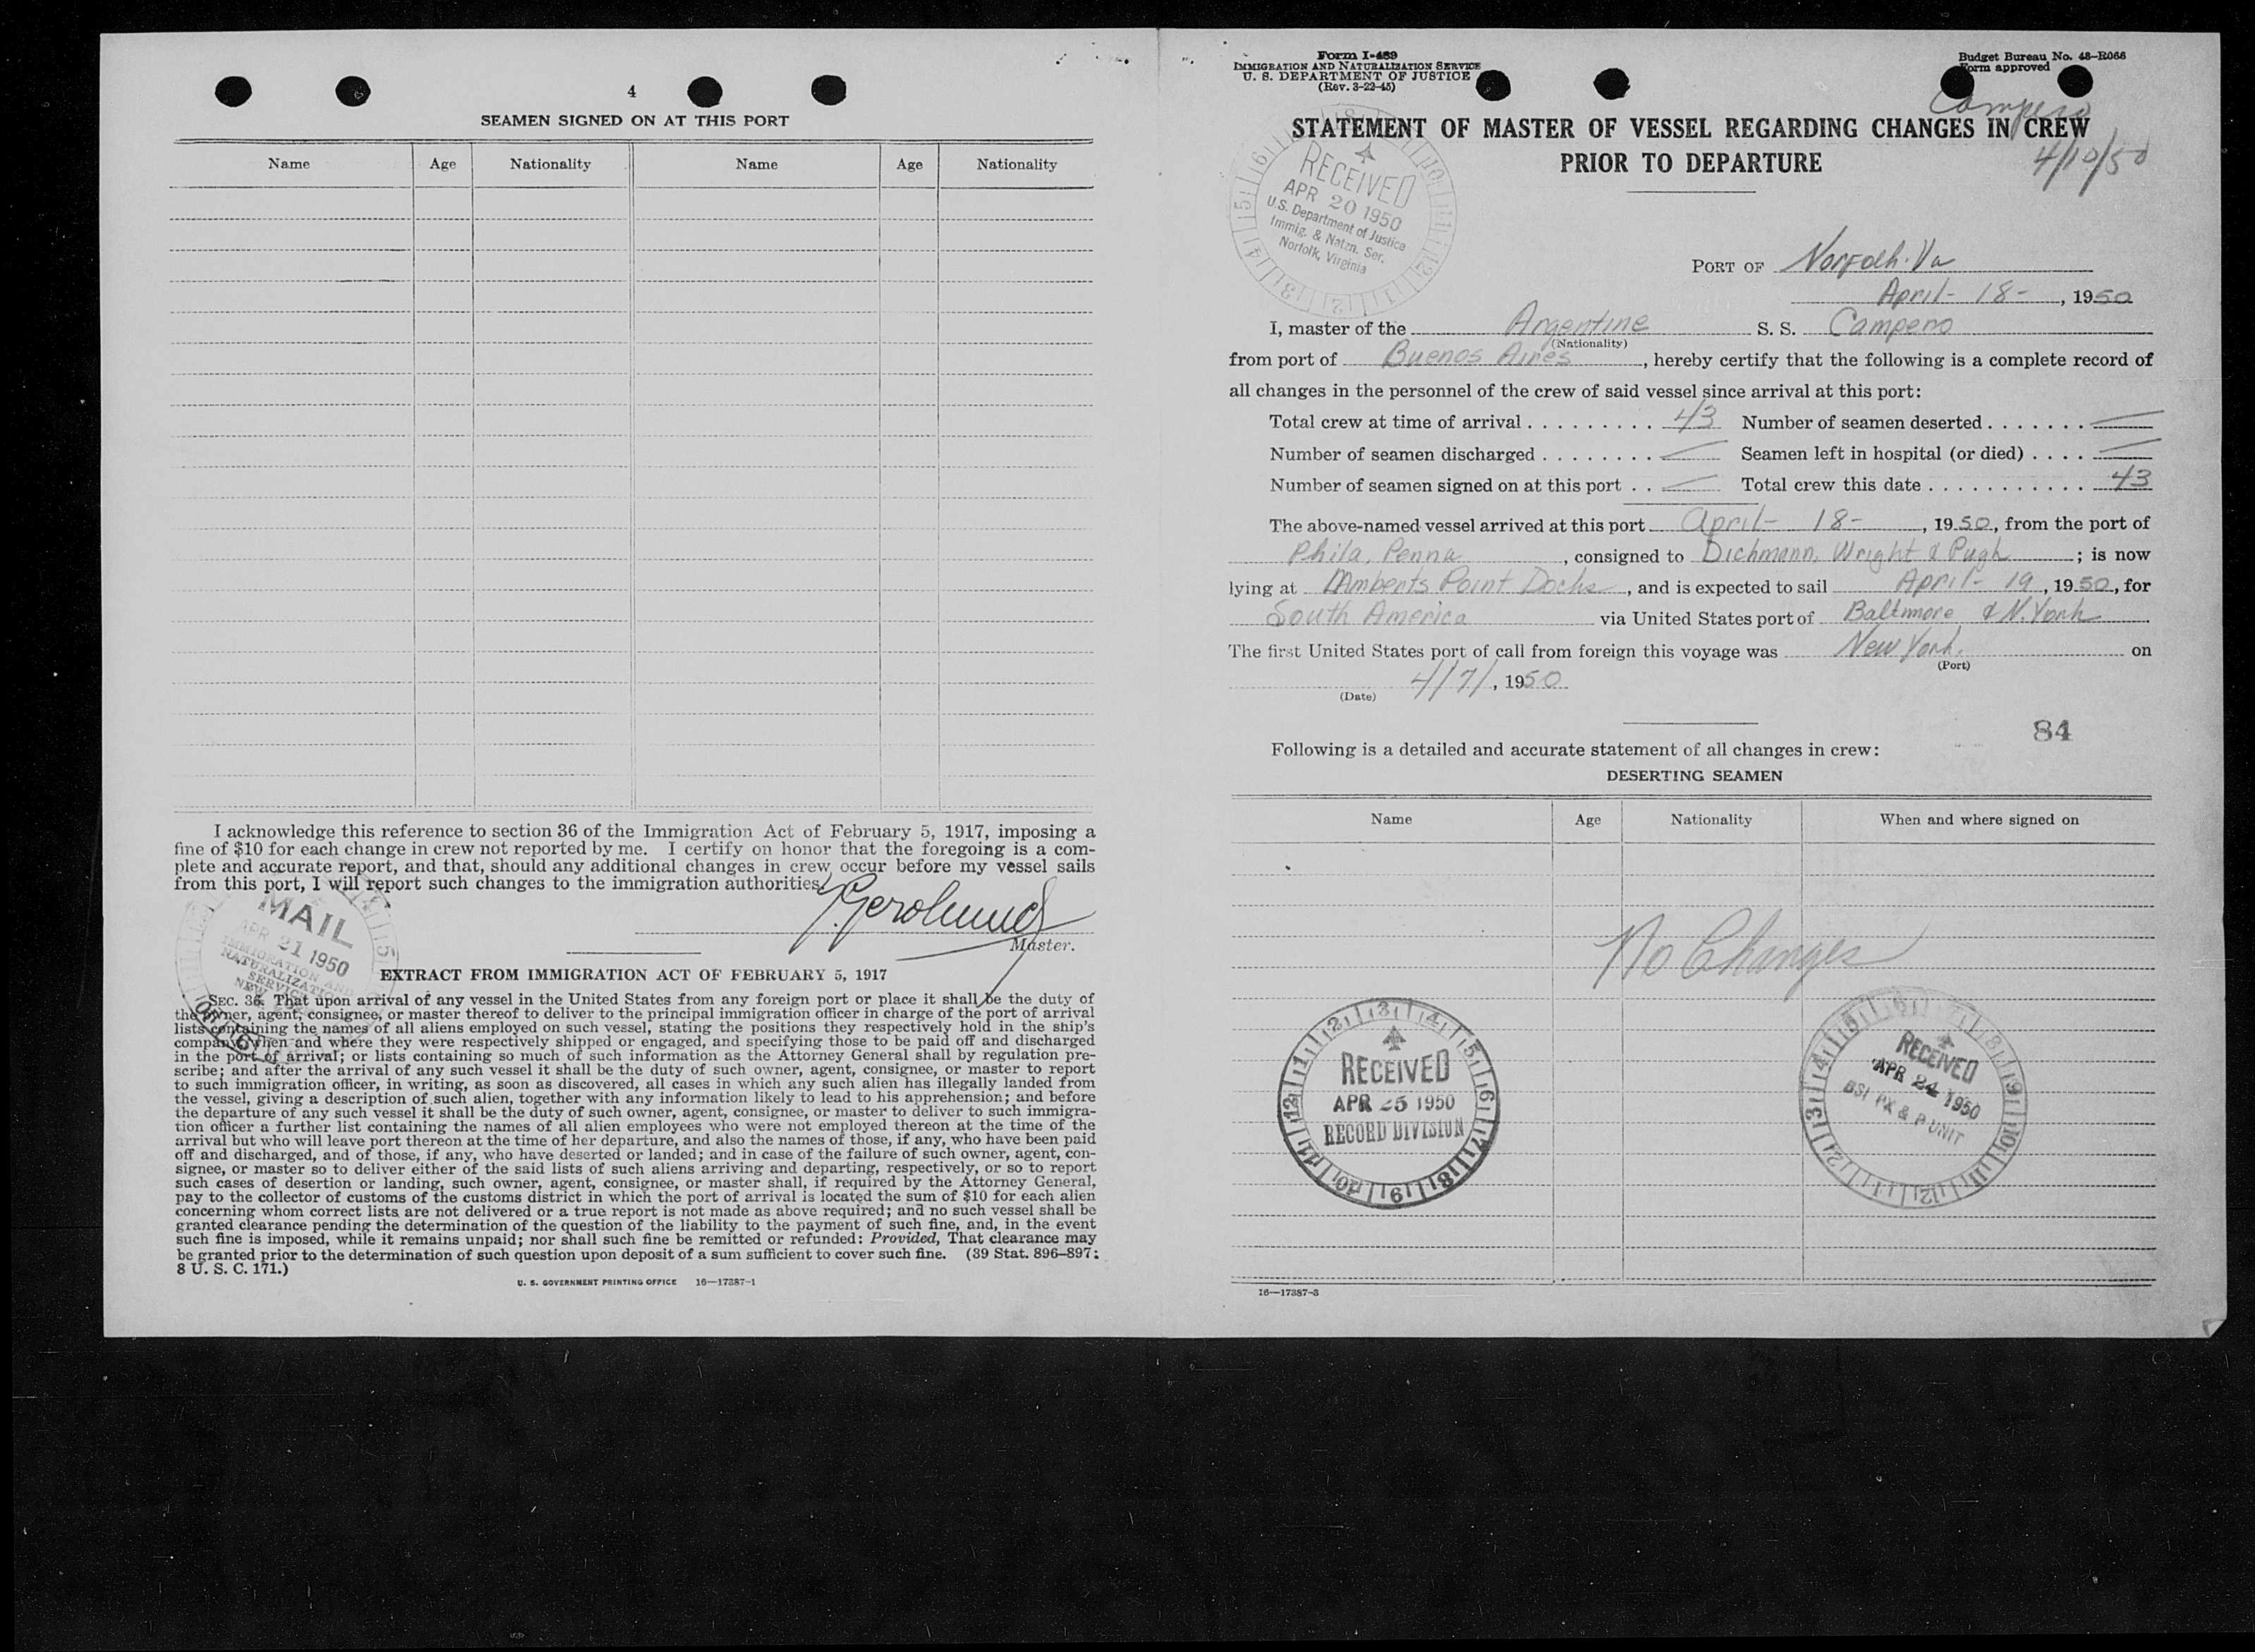 4
SEAMEN SIGNED ON AT THIS PORT
Name Age Nationality Name Age Nationality
I acknowledge this reference to section 36 of the Immigration Act of February 5, 1917, imposing a
fine of $10 for each change in crew not reported by me. I certify on honor that the foregoing is a com-
plete and accurate report, and that, should any additional changes in crew occur before my vessel sails
from this port, I will report such changes to the immigration authorities.
Master.
MAIL
APR 21 1950
IMMIGRATION AND
NATURALIZATION
SERVICE
EXTRACT FROM IMMIGRATION ACT OF FEBRUARY 5, 1917
SEC. 36. That upon arrival of any vessel in the United States from any foreign port or place it shall be the duty of
the owner, agent, consignee, or master thereof to deliver to the principal immigration officer in charge of the port of arrival
lists containing the names of all aliens employed on such vessel, stating the positions they respectively hold in the ship's
company, when and where they were respectively shipped or engaged, and specifying those to be paid off and discharged
in the port of arrival; or lists containing so much of such information as the Attorney General shall by regulation pre-
scribe; and after the arrival of any such vessel it shall be the duty of such owner, agent, consignee, or master to report
to such immigration officer, in writing, as soon as discovered, all cases in which any such alien has illegally landed from
the vessel, giving a description of such alien, together with any information likely to lead to his apprehension; and before
the departure of any such vessel it shall be the duty of such owner, agent, consignee, or master to deliver to such immigra-
tion officer a further list containing the names of all alien employees who were not employed thereon at the time of the
arrival but who will leave port thereon at the time of her departure, and also the names of those, if any, who have been paid
off and discharged, and of those, if any, who have deserted or landed; and in case of the failure of such owner, agent, con-
signee, or master so to deliver either of the said lists of such aliens arriving and departing, respectively, or so to report
such cases of desertion or landing, such owner, agent, consignee, or master shall, if required by the Attorney General,
pay to the collector of customs of the customs district in which the port of arrival is located the sum of $10 for each alien
concerning whom correct lists are not delivered or a true report is not made as above required; and no such vessel shall be
granted clearance pending the determination of the question of the liability to the payment of such fine, and, in the event
such fine is imposed, while it remains unpaid; nor shall such fine be remitted or refunded: Provided, That clearance may
be granted prior to the determination of such question upon deposit of a sum sufficient to cover such fine. (39 Stat. 896–897;
8 U. S. C. 171.)
U. S. GOVERNMENT PRINTING OFFICE 16—17387-1
Form I-489
IMMIGRATION AND NATURALIZATION SERVICE
U. S. DEPARTMENT OF JUSTICE
(Rev. 3-22-45)
Budget Bureau No. 43-R066
Form approved
Campero
4/10/50
STATEMENT OF MASTER OF VESSEL REGARDING CHANGES IN CREW
PRIOR TO DEPARTURE
RECEIVED
APR 20 1950
U.S. Department of Justice
Immig. & Natzn. Ser.
Norfolk, Virginia
PORT OF Norfolk. Va
April- 18-, 1950
I, master of the Argentine S. S. Campero
(Nationality)
from port of Buenos Aires, hereby certify that the following is a complete record of
all changes in the personnel of the crew of said vessel since arrival at this port:
Total crew at time of arrival . . . . . . . . . 43 Number of seamen deserted . . . . . . . —
Number of seamen discharged . . . . . . . . — Seamen left in hospital (or died) . . . . —
Number of seamen signed on at this port . . — Total crew this date . . . . . . . . . . . . 43
The above-named vessel arrived at this port April- 18-, 1950, from the port of
Phila, Penna, consigned to Dichmann, Wright & Pugh; is now
lying at Lamberts Point Docks, and is expected to sail April- 19, 1950, for
South America via United States port of Baltimore & N. York.
The first United States port of call from foreign this voyage was New York. on
(Port)
4/7/, 1950
(Date)
84
Following is a detailed and accurate statement of all changes in crew:
DESERTING SEAMEN
Name Age Nationality When and where signed on
No Changes
RECEIVED
APR 25 1950
RECORD DIVISION
RECEIVED
APR 24 1950
BSI PX & P UNIT
16—17387-3